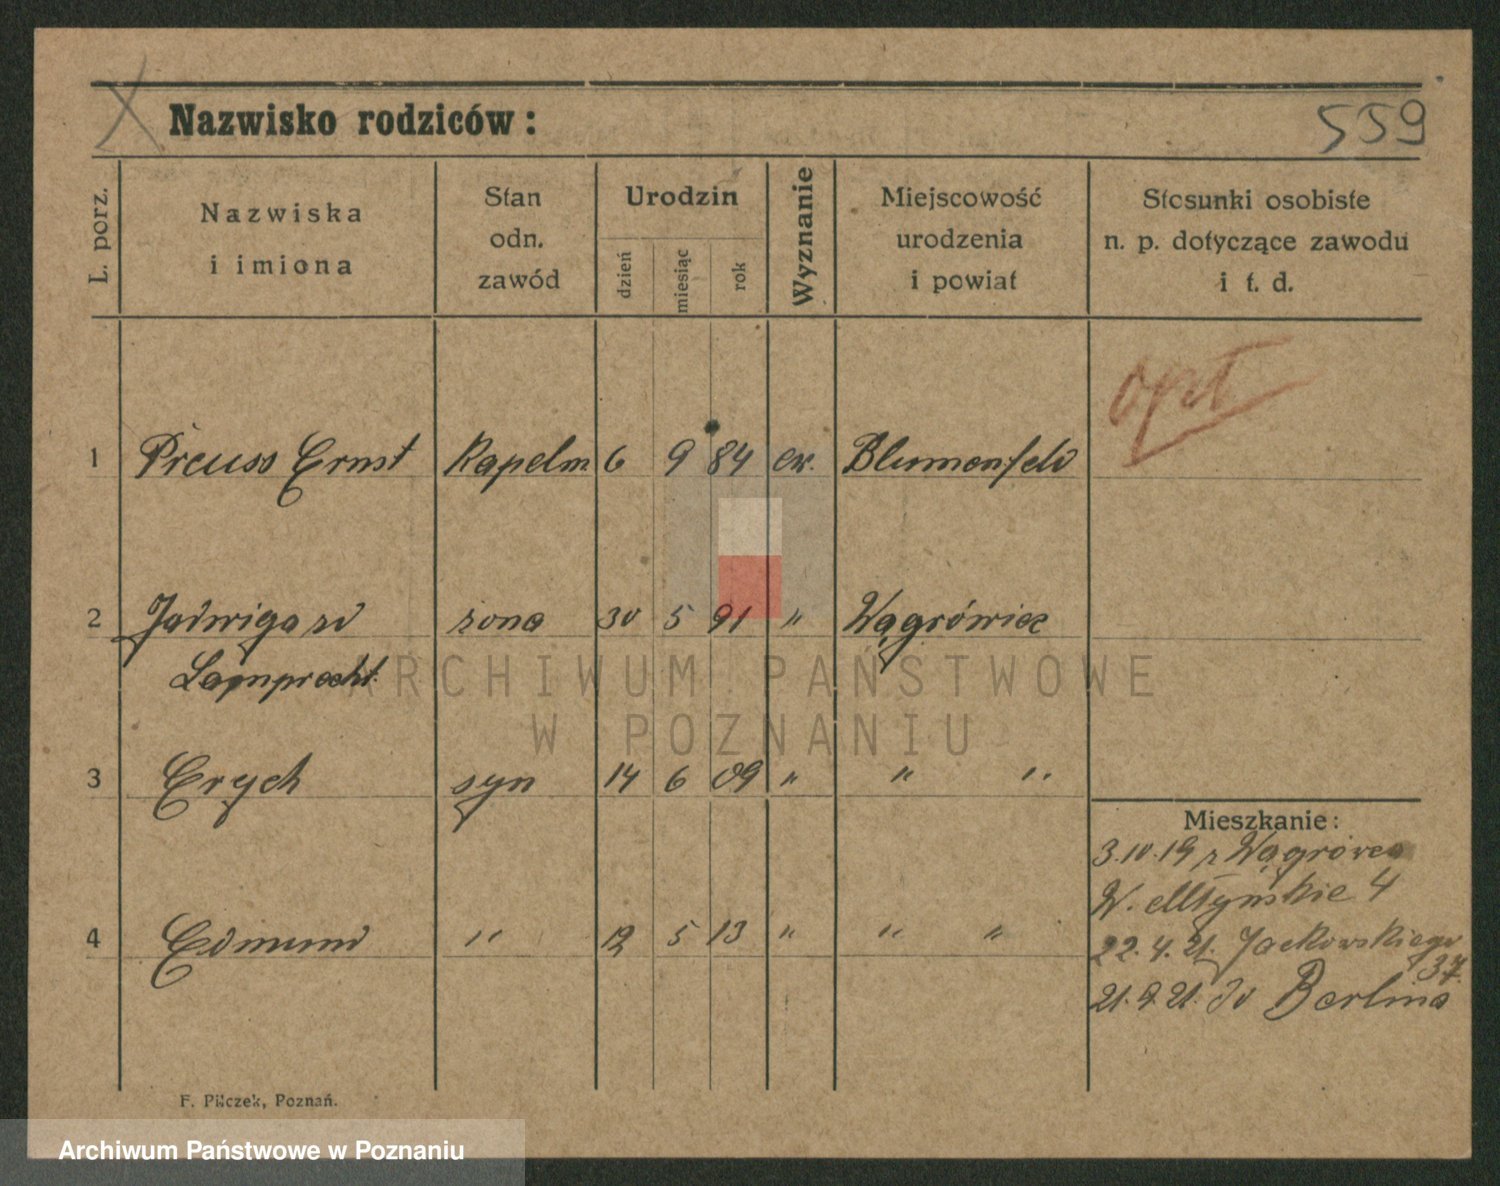 Nazwisko rodziców :
559
L. porz.
Nazwiska
i imiona
Stan
odn.
zawód
Urodzin
dzień
miesiąc
rok
Wyznanie
Miejscowość
urodzenia
i powiat
Stosunki osobiste
n. p. dotyczące zawodu
i t. d.
opt
1 Preuss Ernst Kapelm 6 9 84 ew. Blumenfeld
2 Jadwiga zd żona 30 5 91 " Wągrówiec
Lamprecht
3 Erych syn 14 6 09 " " "
4 Edmund " 12 5 13 " " "
Mieszkanie :
3.10.19 z Wągrówca
W. Młyńskie 4
22.4.21. Jackowskiego
37.
21.9.21. do Berlina
F. Pilczek, Poznań.
ARCHIWUM PAŃSTWOWE
W POZNANIU
Archiwum Państwowe w Poznaniu